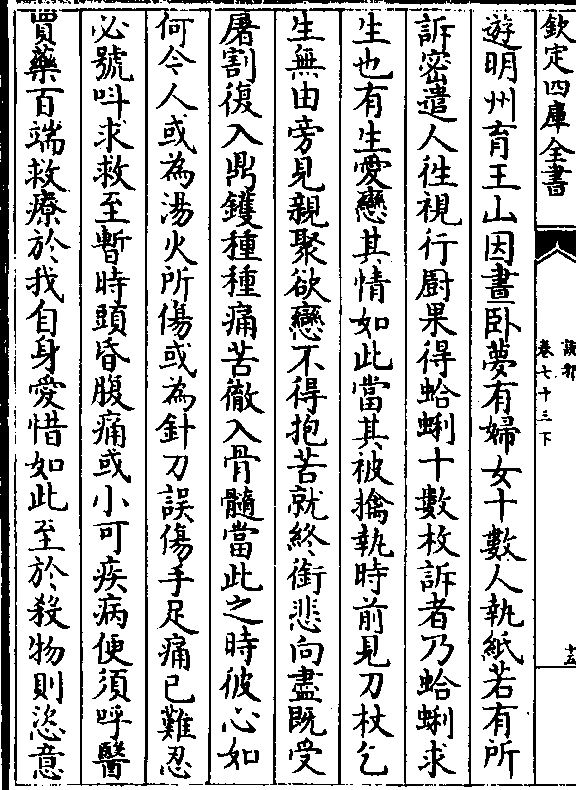 欽定四庫全書
說郛
卷七十三下
十五
遊明州育王山因晝卧夢有婦女十數人執紙若有所
訴密遣人徃視行厨果得蛤蜊十數枚訴者乃蛤蜊求
生也有生愛戀其情如此當其被擒執時前見刀杖乞
生無由旁見親聚欲戀不得抱苦就終銜悲向盡既受
屠割復入鼎鑊種種痛苦徹入骨髓當此之時彼心如
何今人或為湯火所傷或為針刀誤傷手足痛已難忍
必號呌求救至暫時頭昏腹痛或小可疾病便須呼醫
買藥百端救療於我自身愛惜如此至於殺物則恣意